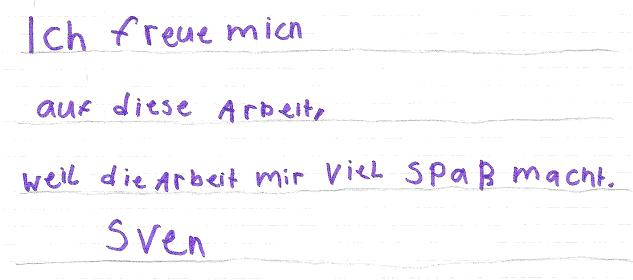 Ich freue mich
auf diese Arbeit,
weil die Arbeit mir viel Spaß macht.
Sven